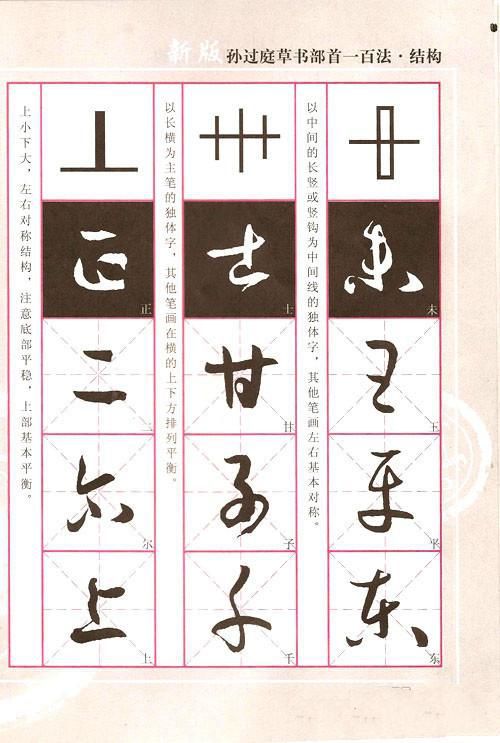 新版 孙过庭草书部首一百法·结构
以中间的长竖或竖钩为中间线的独体字，其他笔画左右基本对称。
未
王
平
东
以长横为主笔的独体字，其他笔画在横的上下方排列平衡。
士
甘
子
千
上小下大，左右对称结构，注意底部平稳，上部基本平衡。
正
二
尔
上